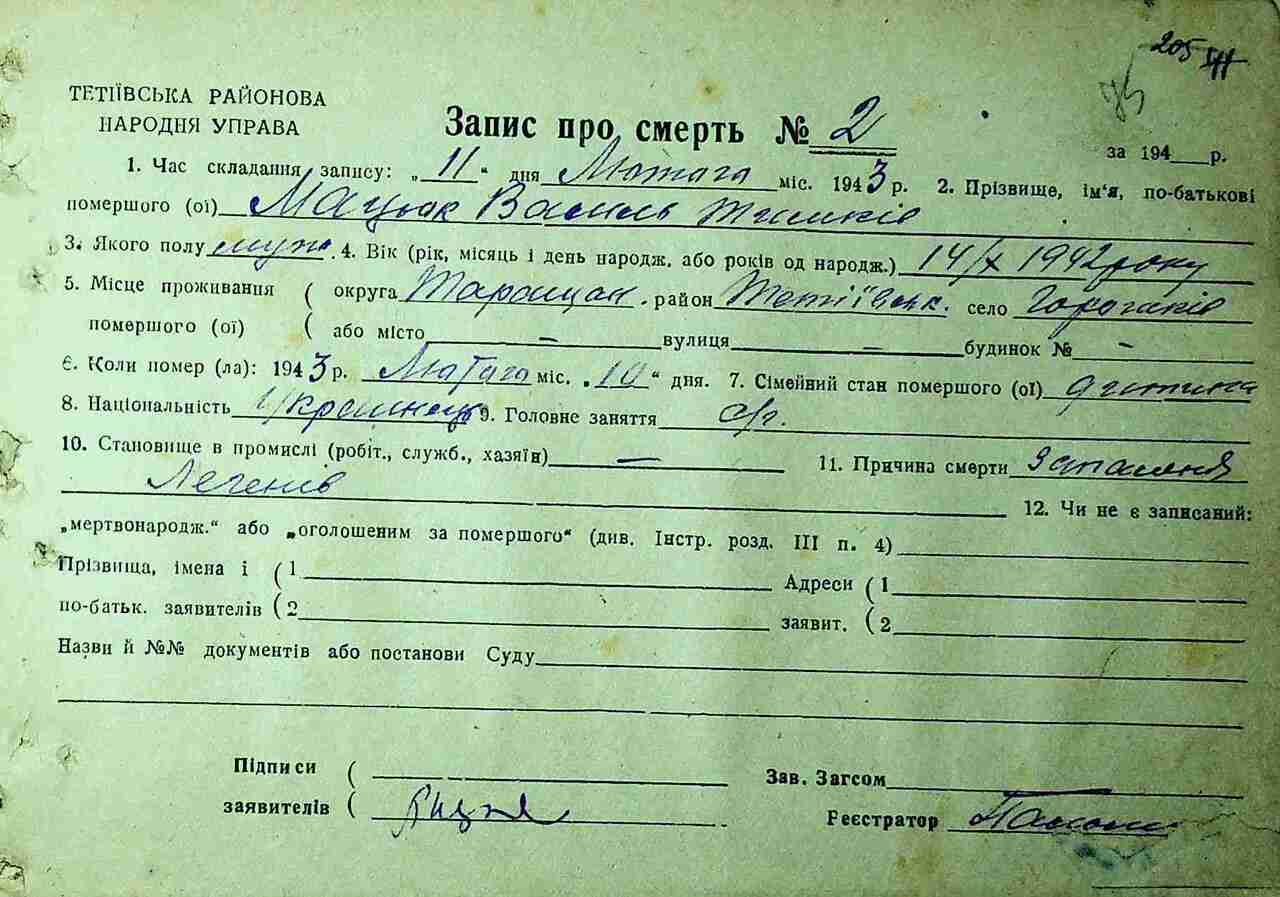 205
75
ТЕТІЇВСЬКА РАЙОНОВА
НАРОДНЯ УПРАВА
Запис про смерть № 2
за 194 р.
1. Час складання запису: „11“ дня Лютага міс. 1943 р. 2. Прізвище, ім'я, по-батькові
помершого (ої) Мацюк Василь Тимків
3. Якого полу муж. 4. Вік (рік, місяць і день народж. або років од народж.) 14/X 1942 року
5. Місце проживання ( округа Таращан. район Тетіївськ. село
помершого (ої) ( або місто — вулиця — будинок № -
6. Коли помер (ла): 1943 р. Лютага міс. „10“ дня. 7. Сімейний стан помершого (ої) дитина
8. Національність Українець 9. Головне заняття с/г.
10. Становище в промислі (робіт., служб., хазяїн) — 11. Причина смерти Запалення
Легенів
12. Чи не є записаний:
„мертвонародж.“ або „оголошеним за помершого“ (див. Інстр. розд. III п. 4)
Прізвища, імена і ( 1 Адреси ( 1
по-батьк. заявителів ( 2 заявит. ( 2
Назви й №№ документів або постанови Суду
Підписи ( Зав. Загсом
заявителів ( Реєстратор